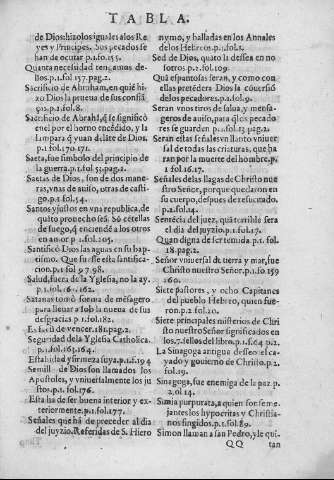 TABLA.
de Dios: hizolos iguales a los Re
yes y Principes. Sus pecados se
han de ocutar p.1.fo.155.
Quanta necesidad tengamos
dellos. p.1.fol 157.pag.2.
Sacrificio de Abraham, en quié hi
zo Dios la prueua de sus confiā
ças p.1.fol.8.
Sacrificio de Abrahā, q̄ le significó
en el por el horno encēdido, y la
lāmpara y quan dilate de Dios.
p.1.fol.170.171.
Saeta, fue simbolo del principio de
la guerra.p.1.fol 53.pag.2.
Saetas de Dios, son de dos mane-
ras, vnas de auiso, otras de casti-
go.p.1.fol.54.
Santos y justos en vna republica, de
quito prouecho seā. Só cētellas
de fuego, q̄ enciendē a los otros
en amor p.1.fol.105.
Santificó Dios las aguas en su bap-
tismo. Que su sea esta santifica-
cion.p.1 fol 97.98.
Salud, fuera de la Yglesia, no la ay.
p.1.fol.161.162.
Satanas tomó forma de mēsagero
para lleuar a Iob la nueua de sus
desgracias p.1.fol.182.
de vencer.181.pag.2.
Seguridad dela Yglesia Catholica.
p.1.fol.163.164.
Estabilidad y firmeza suya.p.1.f.194
Semilla de Dios son llamados los
Apostoles, y vniuersalmente los ju
stos.p.1.fol.176.
Esta ha de ser buena interior y ex-
teriormente.p.1.fol.177.
Señales que há de preceder al dia
del juyzio. Referidas de S. Hiero
nymo, y halladas en los Annales
de los Hebreos.p.1.fol.1.
Sed de Dios, quato la dessea en no
sotros: p.2.fol.109.
Quá espantosas seran, y como con
ellas pretēdera Dios la couersió
de los pecadores.p.1.fol.9.
Seran vnos tiros de salua, y mensa-
geros de auiso, para q̄ los pecado
res se guarden p.1.fol.13 pag.2.
Seran estas señales vn llanto vniuer
sal de todas las criaturas, que ha
ran por la muerte del hombre.p.
1 fol.16.17.
Señales de las llagas de Christo nue
stro Señor, porque quedaron en
su cuerpo, despues de resucitado.
p.2.fol.14.
serà el juez, quá terrible sera
el dia del juyzio.p.1.fol.17.
Quan digna de ser temida p.1.fol.
18.pag.2.
Señor vniuersal de tierra y mar, fue
Christo nuestro Señor.p.1.fo 159
160.
Siete pastores, y ocho Capitanes
del pueblo Hebreo, quien fue-
ron.p.2.fol.20.
Siete principales misterios de Chri
sto nuestro Señor significados en
los.7.sellos del libro.p.1.f.64 p.2.
La Sinagoga antigua desseó el ca-
yado y gouierno de Christo.p.2.
fol.19.
Sinagoga, fue enemiga de la paz p.
2.fol 14.
Simia purpurata, a quien son seme
jantes los hypocritas y Christia-
nos fingidos.p.1.fol.89.
Simon llaman a san Pedro, y le qui-
QQ tan